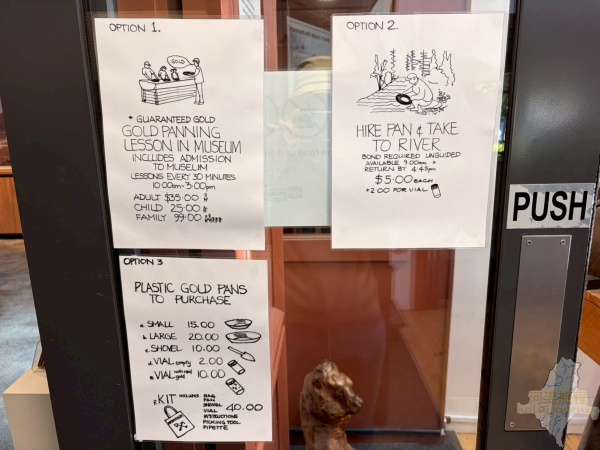 OPTION 1.
GOLD
* GUARANTEED GOLD
GOLD PANNING
LESSON IN MUSEUM
INCLUDES ADMISSION
TO MUSEUM
LESSONS EVERY 30 MINUTES
10:00am - 3:00pm
ADULT $35.00
CHILD 25.00
FAMILY 99.00
OPTION 2.
HIRE PAN & TAKE
TO RIVER
BOND REQUIRED UNGUIDED
AVAILABLE 9:00am +
RETURN BY 4:45pm
$5.00 EACH
+2.00 FOR VIAL
PUSH
OPTION 3
PLASTIC GOLD PANS
TO PURCHASE
a. SMALL 15.00
b. LARGE 20.00
c. SHOVEL 10.00
d. VIAL empty 2.00
e. VIAL with real gold 10.00
F. KIT INCLUDES BAG
PAN
SHOVEL
VIAL 40.00
INSTRUCTIONS
PICKING TOOL
PIPETTE